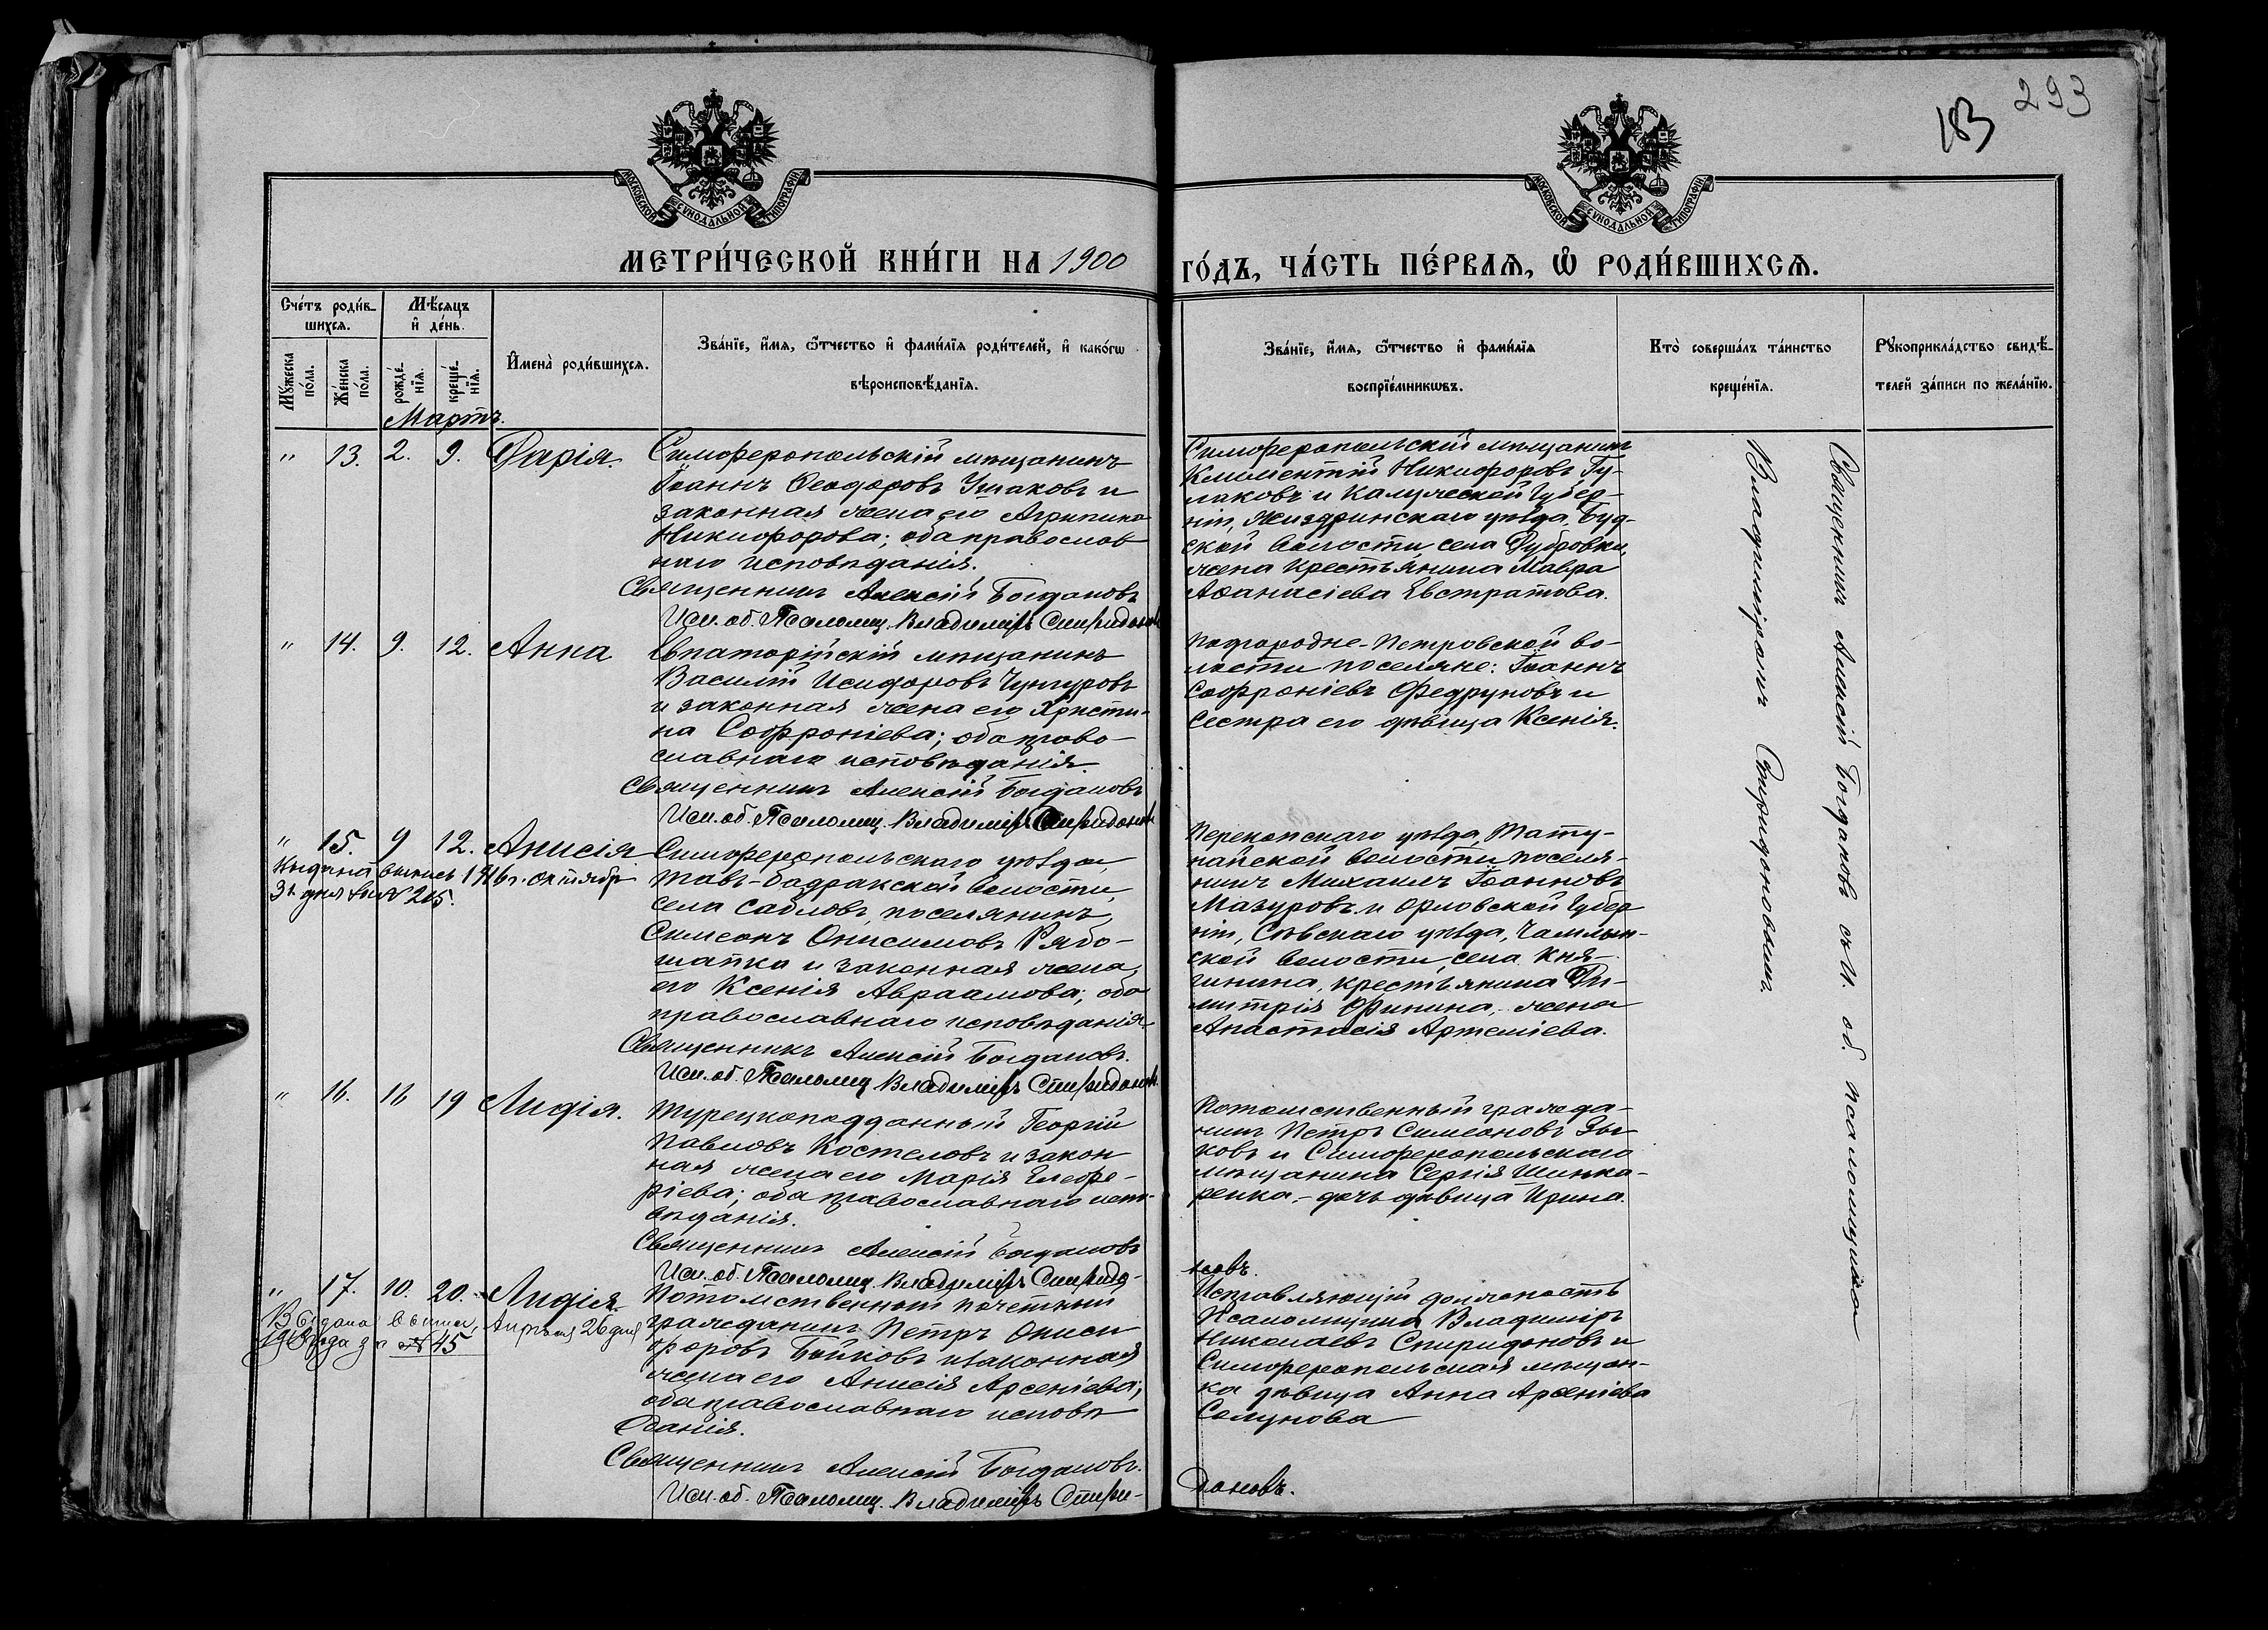 293
183
МОСКОВСКОЙ СѴНОДАЛЬНОЙ ТИПОГРАФІИ
МОСКОВСКОЙ СѴНОДАЛЬНОЙ ТИПОГРАФІИ
МЕТРИ́ЧЕСКОЙ КНИ́ГИ НА 1900
ГО́ДЪ, ЧА́СТЬ ПЕ́РВАЯ, Ѡ РОДИ́ВШИХСЯ.
Сче́тъ роди́вшихся.
Мѣ́сяцъ и де́нь.
Мꙋ́жеска по́ла.
Же́нска по́ла.
рожде́нїя.
креще́нїя.
Имена̀ роди́вшихся.
Зва́нїе, и́мя, ѻ҆́тчество и фами́лїя роди́телей, и како́гѡ
вѣроисповѣ́данїя.
Зва́нїе, и́мя, ѻ҆́тчество и фами́лїя
воспрїе́мникѡвъ.
Кто̀ соверша́лъ та́инство
креще́нїя.
Рꙋкоприкла́дство свидѣ́-
телей за́писи по жела́нїю.
Мартъ.
" 13. 2. 9. Дарія.
Симферопольскій мѣщанинъ
Іоаннъ Ѳеодоровъ Ушаковъ и
законная жена его Агрипина
Никифорова; оба православ
наго исповѣданія.
Священникъ Алексій Богдановъ
Исп. об. Псаломщ. Владиміръ Спиридоновъ
Симферопольскій мѣщанинъ
Климентій Никифоровъ Гу-
лаковъ и Калужской Губер-
ніи, Жиздринскаго уѣзда, Буд-
ской волости, села Дубровки,
жена крестьянина Мавра
Аѳанасіева Евстратова.
" 14. 9. 12. Анна
Евпаторійскій мѣщанинъ
Василій Исидоровъ Чунгуровъ
и законная жена его Христи-
на Софроніева; оба право-
славнаго исповѣданія.
Священникъ Алексій Богдановъ
Исп. об. Псаломщ. Владиміръ Спиридоновъ
Подгородне-Петровской во-
лости поселяне: Іоаннъ
Софроніевъ Федруновъ и
сестра его дѣвица Ксенія.
" 15. 9 12. Анисія
Выдана выпись 1916 г. октября
31 дня за № 215.
Симферопольскаго уѣзда,
Тавъ-бадракской волости,
села Сабловъ, поселянинъ
Симеонъ Онисимовъ Рябо-
шапка и законная жена
его Ксенія Авраамова; оба
православнаго исповѣданія
Священникъ Алексій Богдановъ.
Исп. об. Псаломщ. Владиміръ Спиридоновъ.
Перекопскаго уѣзда, Тату-
найской волости поселя-
нинъ Михаилъ Іоанновъ
Мазуровъ и Орловской Губер
ніи, Сѣвскаго уѣзда, Чамлыж-
ской волости, села Кня-
гинина, крестьянина Ди-
митрія Финина, жена
Анастасія Артеміева.
" 16. 16 19 Лидія.
Турецкоподданный Георгій
Павловъ Костеловъ и закон
ная жена его Марія Елефе-
ріева; оба православнаго испо-
вѣданія.
Священникъ Алексій Богдановъ
Исп. об. Псаломщ. Владиміръ Спиридо-
новъ.
Потомственный гражда-
нинъ Петръ Симеоновъ Зы
ковъ и Симферопольскаго
мѣщанина Сергія Шинка-
ренка,- дочь дѣвица Ирина.
" 17. 10. 20. Лидія.
Выдана выпись, Апрѣля 26 дня
за № 45
Потомственный почетный
гражданинъ Петръ Ониси
форовъ Бойковъ и законная
жена его Анисія Арсеніева;
оба православнаго исповѣ
данія.
Священникъ Алексій Богдановъ.
Исп. об. Псаломщ. Владиміръ Спири-
доновъ.
Исправляющій должность
Псаломщика Владиміръ
Николаевъ Спиридоновъ и
Симферопольская мѣщан-
ка дѣвица Анна Арсеніева
Солунова
Священникъ Алексій Богдановъ съ И. об. псаломщика
Владиміромъ Спиридоновымъ.